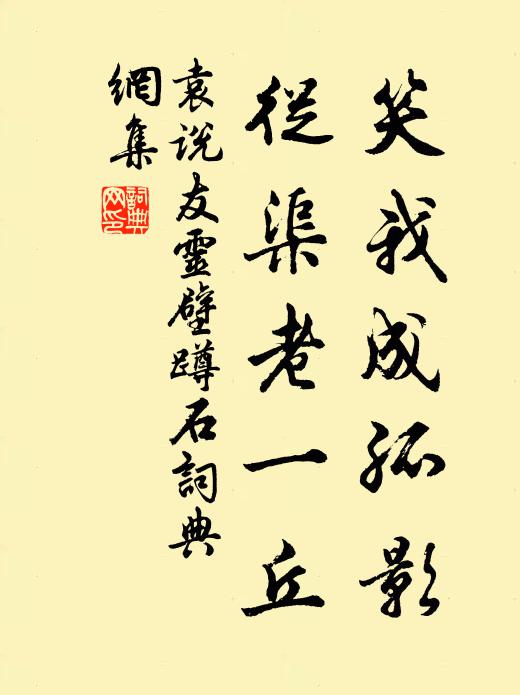 笑我成孤影
從渠老一丘
袁說友靈壁蹲石詞典
網集
詞典網印